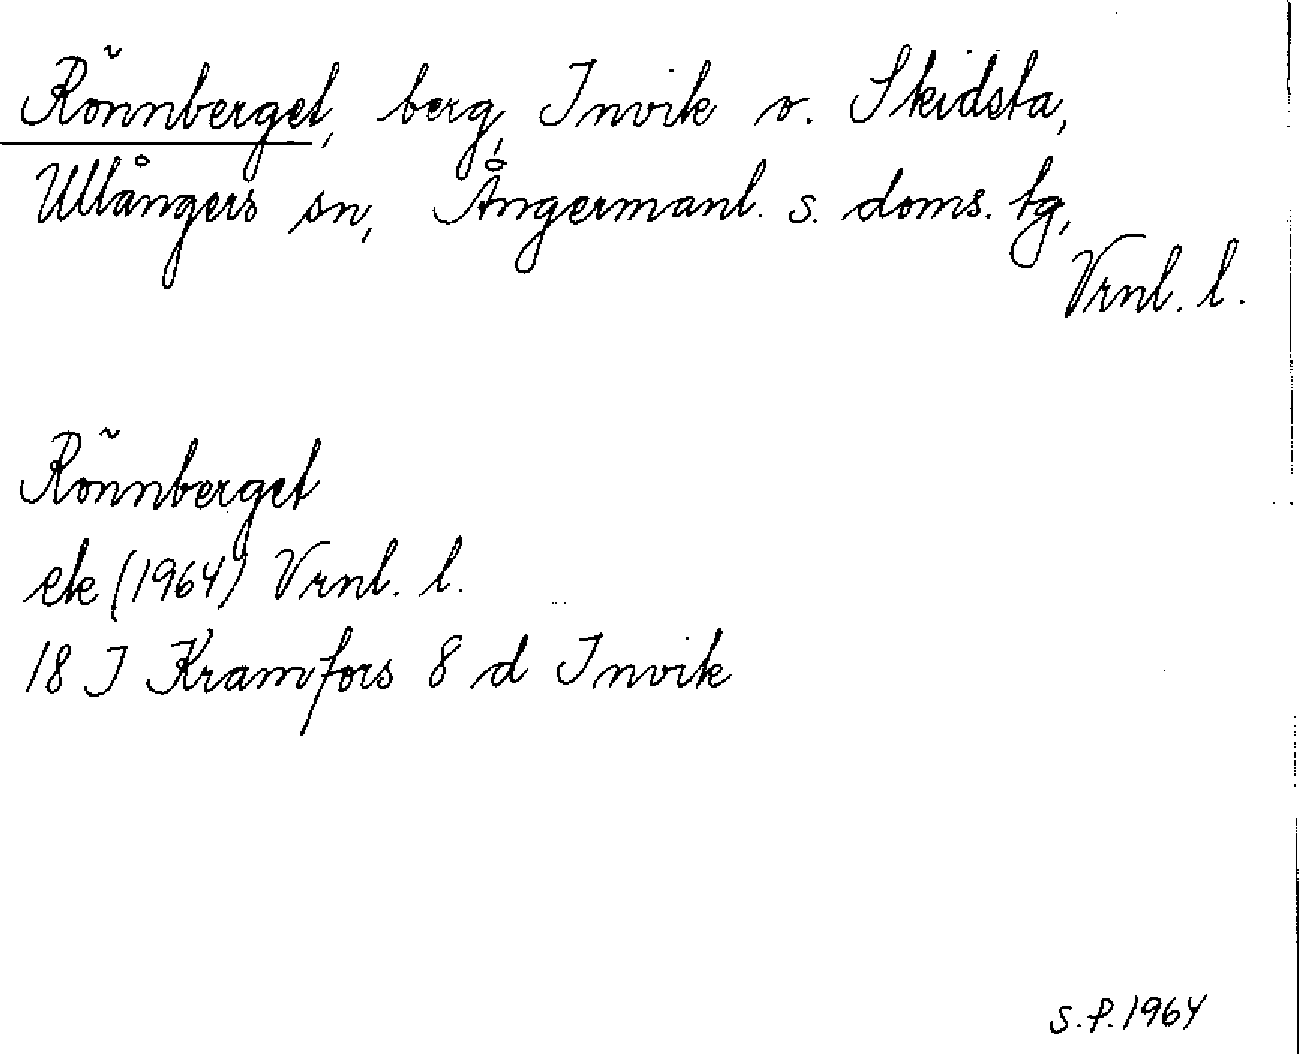 Rönnberget, berg, Invik o. Skidsta,
Ullångers sn, Ångermanl. s. doms. tg,
Vrnl. l.
Rönnberget
ek (1964) Vrnl. l.
18 I Kramfors 8 d Invik
S.P. 1964